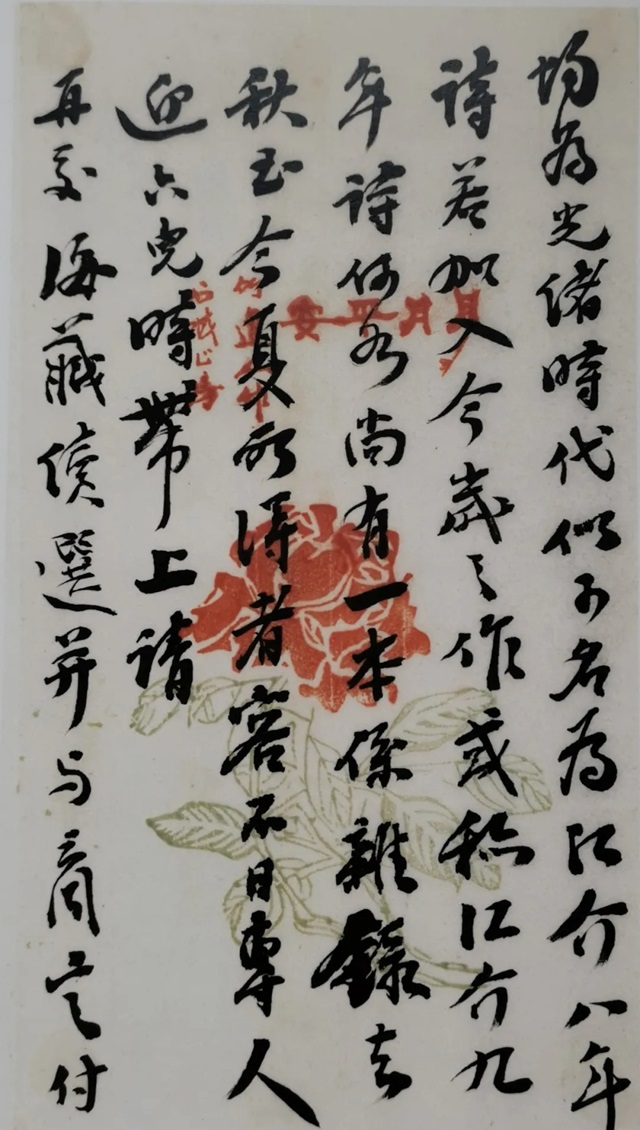 均為光緒時代似可名為江介八年
詩若加入今歲之作或稱江介九
年詩何如尚有一本係雜錄去
秋至今夏所得者容不日專人
迎六兒時帶上請
再交海藏續選并与商定付
月月平安